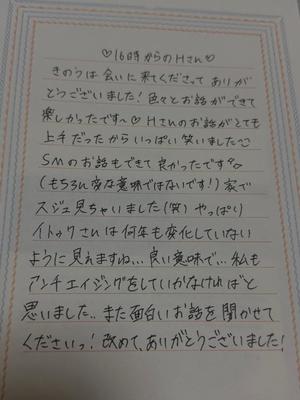 ♡16時からのHさん♡
きのうは会いに来てくださって ありが
とうございました！色々とお話ができて
楽しかったです〜♡Hさんのお話がとても
上手だったからいっぱい笑いました
SMのお話もできて良かったです
(もちろん変な意味ではないです！) 家で
スジュ見ちゃいました(笑) やっぱり
イトゥクさんは何年も変化していない
ように見えますね...良い意味で...私も
アンチエイジングをしていかなければと
思いました..また面白いお話を聞かせて
くださいっ！改めて、ありがとうございました！